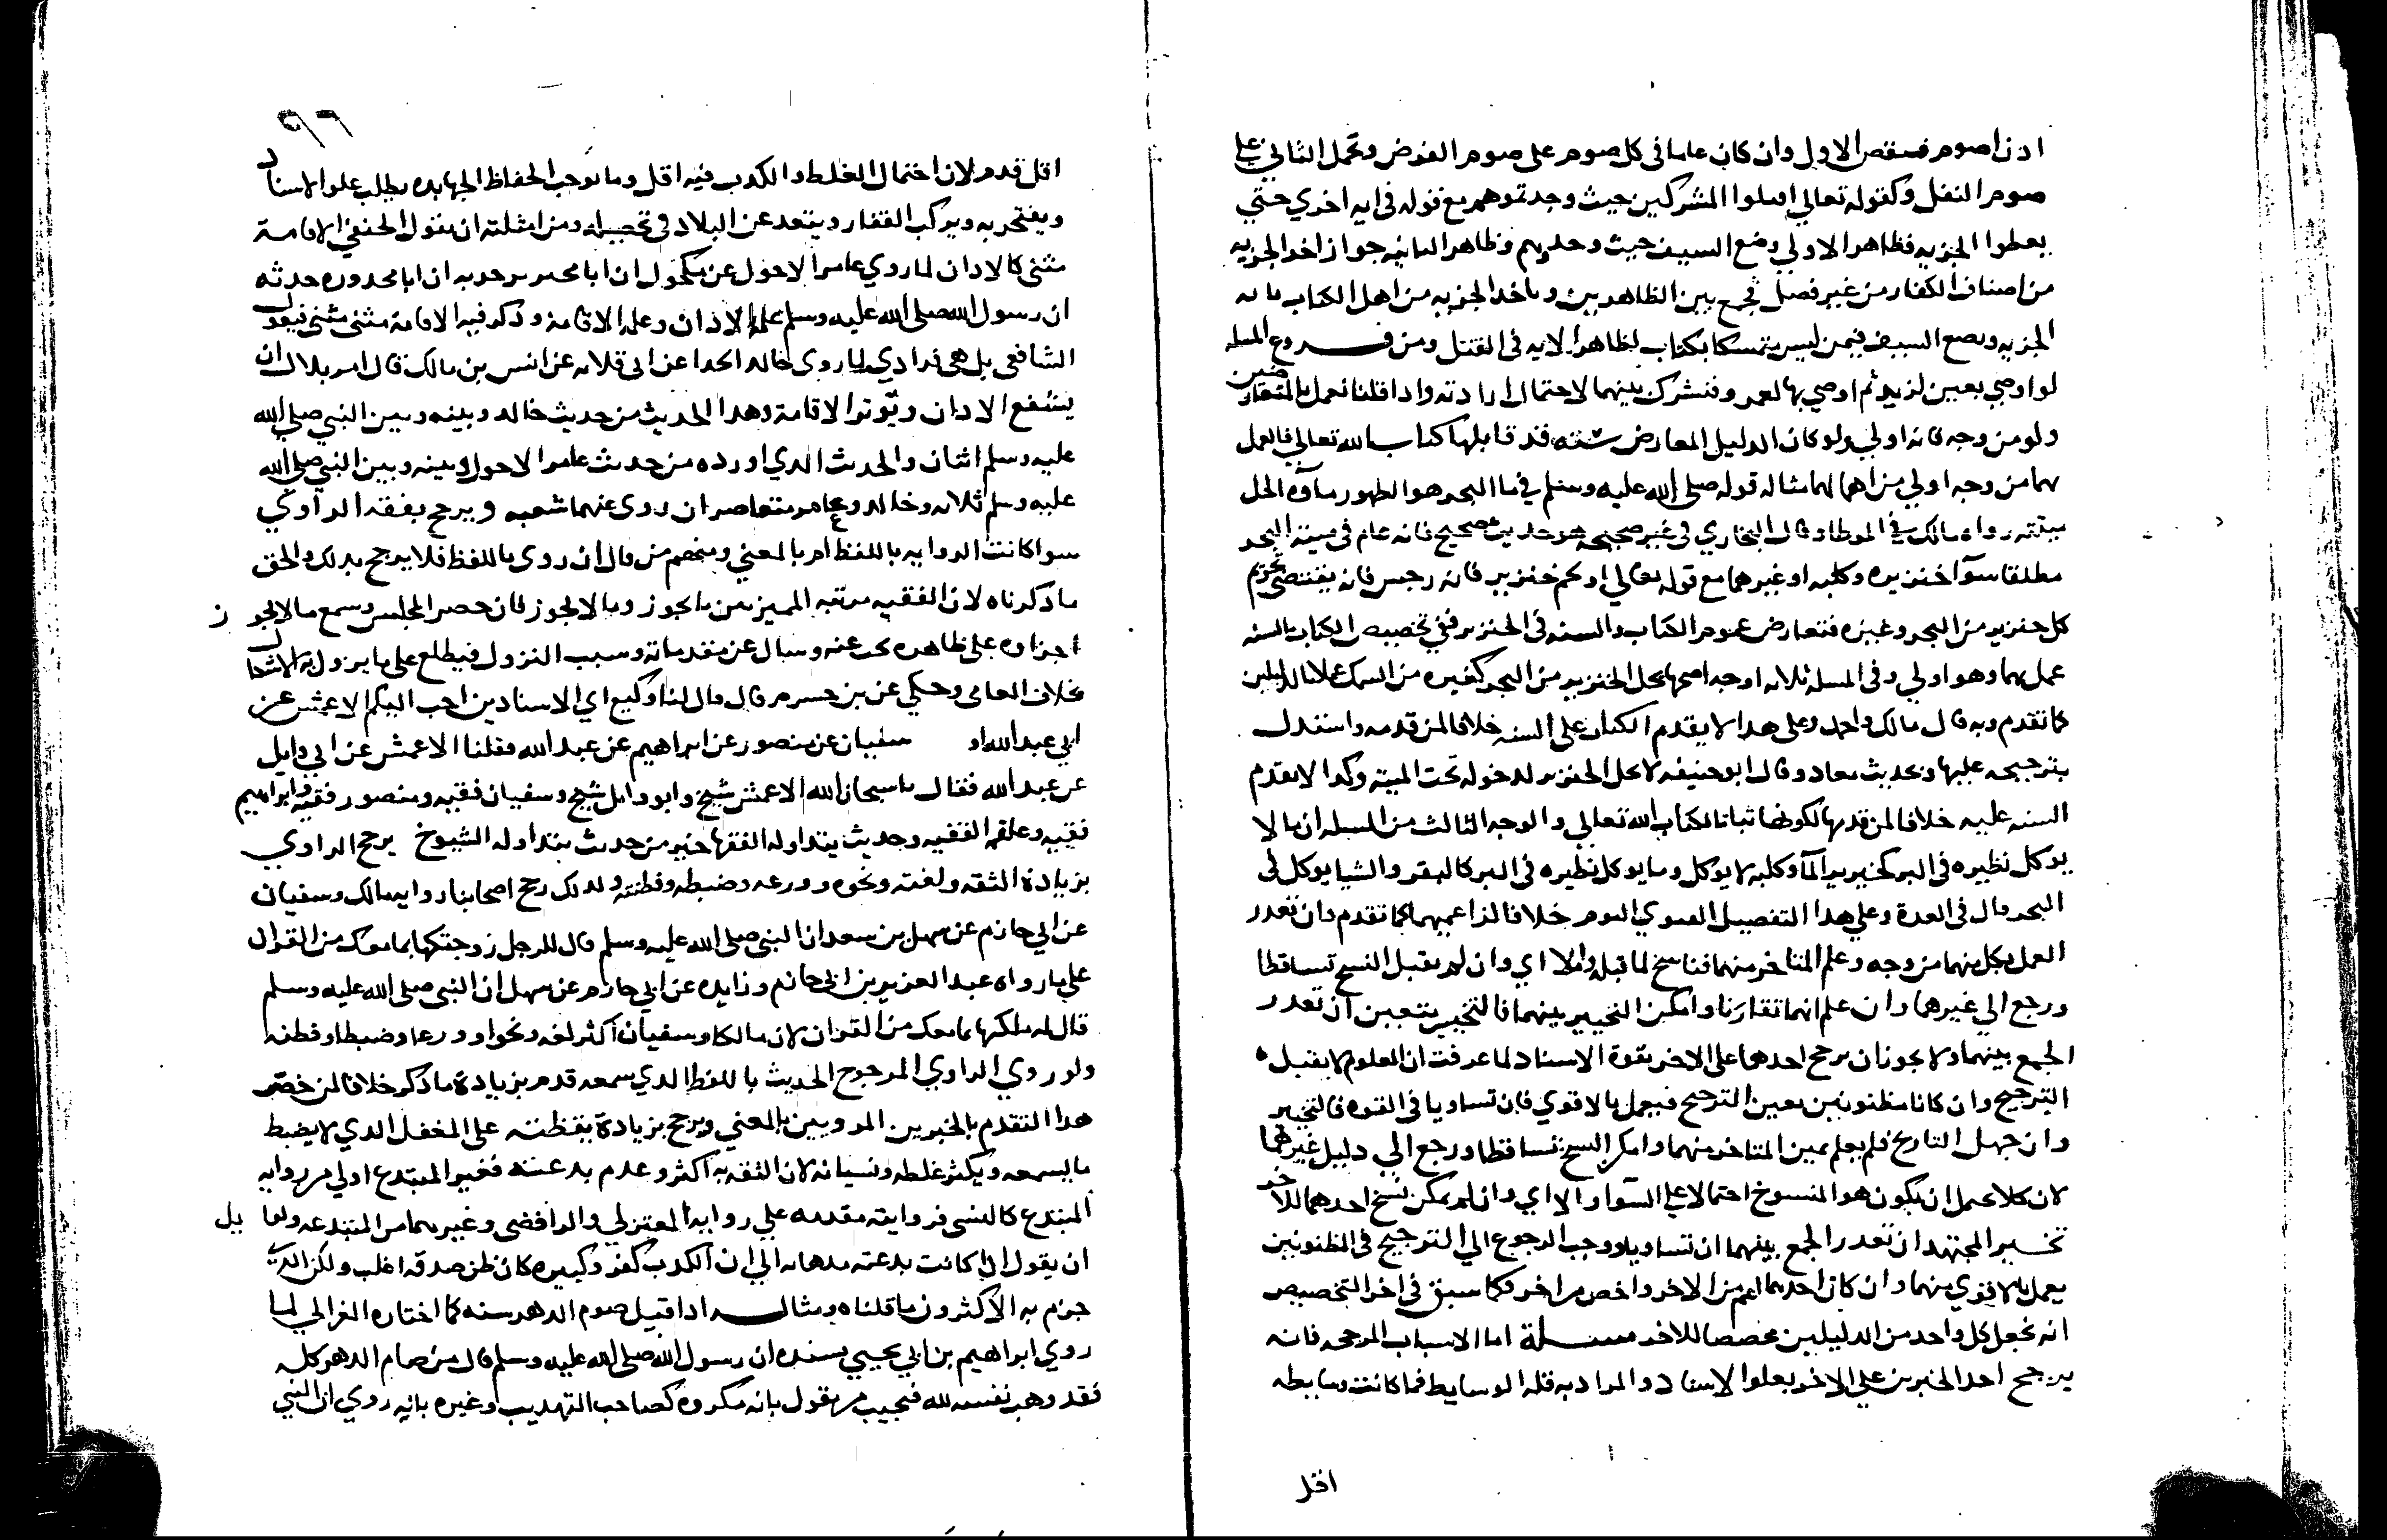 اذن اصوم فنقص الاول وان كان عاما في كل صوم على صوم الفرض ويحمل الثاني على
صوم النفل وكقوله تعالى اقتلوا المشركين حيث وجدتموهم مع قوله في ايه اخري حتى
يعطوا الجزيه فظاهر الاولي وضع السيف حيث وجدوهم وظاهر الثانيه جواز اخذ الجزيه
من اصناف الكفار من غير فصل فجمع بين الظاهرين وياخذ الجزيه من اهل الكتاب بايه
الجزيه ويضع السيف فيمن ليس متمسكا بكتاب لظاهر الايه في القتل ومن فروع المسله
لو اوصي بعين لزيد ثم اوصي بها لعمرو فنشرك بينهما لاحتمال ارادته واذا قلنا نعمل بالمتعارضين
ولو من وجه فانه اولي ولو كان الدليل المعارض سنه قد قابلها كتاب الله تعالي فالعمل
بهما من وجه اولي من اهمالهما مثاله قوله صلى الله عليه وسلم في ما البحر هو الطهور ماؤه الحل
ميتته رواه مالك في الموطا وقال البخاري في غير صحيحه هو حديث صحيح فانه عام في ميتة البحر
مطلقا سوآ خنزيره وكلبه او غيرهما مع قوله تعالي او لحم خنزير فانه رجس فانه يقتضي تحريم
كل خنزير من البحر وغيره فتعارض عموم الكتاب والسنه في الخنزير ففي تخصيص الكتاب بالسنه
عمل بهما وهو اولي وفي المسله ثلاثه اوجه اصحها يحل الخنزير من البحر كغيره من السمك عملا بالدليلين
كما تقدم وبه قال مالك واحمد وعلى هذا لا يقدم الكتاب على السنه خلافا لمن قدمه واستدل
بترجيحه عليها بحديث معاد وقال ابو حنيفه لا يحل الخنزير لدخوله تحت الميته وكذا لا يقدم
السنه عليه خلافا لمن قدمها لكونها تبيانا لكتاب الله تعالي والوجه الثالث من المسله ان ما لا
يوكل نظيره في البر كخنزير المآ وكلبه لا يوكل وما يوكل نظيره في البر كالبقر والشيا يوكل في
البحر قال في العدة وعلي هذا التفصيل الفتوي اليوم خلافا لزاعميهما كما تقدم وان تعذر
العمل بكل منهما من وجه وعلم المتاخر منهما فناسخ لما قبله والا اي وان لم يقبل النسخ تساقطا
ورجع الي غيرهما وان علم انهما تقارنا وامكن التخيير بينهما فالتخيير يتعين ان تعذر
الجمع بينهما ولا يجوز ان يرجح احدهما على الاخر بقوة الاسناد لما عرفت ان المعلوم لا يقبل
الترجيح وان كانا مظنونين تعين الترجيح فيعمل بالاقوي فان تساويا في القوه فالتخيير
وان جهل التاريخ فلم يعلم عين المتاخر منهما وامكن النسخ تساقطا ورجع الي دليل غيرهما
لان كلا يحتمل ان يكون هو المنسوخ احتمالا على السوآ والا اي وان لم يمكن نسخ احدهما للاخر
تخير المجتهد ان تعذر الجمع بينهما ان تساويا ووجب الرجوع الي الترجيح في الظنونيين
يعمل بالاقوي منهما وان كان احدهما اعم من الاخر واخص من اخر فكما سبق في اخر التخصيص
انه يجعل كل واحد من الدليلين مخصصا للاخر مسلة اما الاسباب المرجحه فانه
يرجح احد الخبرين علي الاخر بعلو الاسناد والمراد به قلة الوسايط فما كانت وسايطه
اقل
٩٦
اقل قدم لان احتمال الغلط والكدب فيه اقل وما توجب الحفاظ الجهابده يطلب علو الاسناد
ويفتخر به ويركب القفار ويبتعد عن البلاد في تحصيله ومن امثلته ان يقول الحنفي الاقامة
مثنى كالاذان لما روي عامر الاحول عن مكحول ان ابا محيريز حدثه ان ابا محذوره حدثه
ان رسول الله صلى الله عليه وسلم علمه الاذان وعلمه الاقامة وذكر فيه الاقامة مثنى مثنى فيقول
الشافعي بل هي فرادي لما روى خالد الحدا عن ابي قلابه عن انس بن مالك قال امر بلال ان
يشفع الاذان ويوتر الاقامة وهذا الحديث من حديث خالد وبينه وبين النبي صلى الله
عليه وسلم اثنان والحديث الذي اورده من حديث عامر الاحول وبينه وبين النبي صلى الله
عليه وسلم ثلاثه وخالد وعامر متعاصران روى عنهما شعبه ويرجح بفقه الراوي
سوا كانت الروايه باللفظ ام بالمعني ومنهم من قال ان روى باللفظ فلا يرجح بذلك والحق
ما ذكرناه لان الفقيه مرتبه المميز بين ما يجوز وما لا يجوز فان حضر المجلس وسمع ما لا يجوز
اجراوه على ظاهره بحث عنه وسال عن مقدماته وسبب النزول فيطلع على ما يزول به الاشكال
بخلاف العامي وحكي عن بن خشرم قال قال لنا وكيع اي الاسنادين احب اليكم الاعمش عن
ابي عبد الله او سفيان عن منصور عن ابراهيم عن عبد الله فقلنا الاعمش عن ابي وايل
عن عبد الله فقال يا سبحان الله الاعمش شيخ وابو وايل شيخ وسفيان فقيه ومنصور فقيه وابراهيم
فقيه وعلقمه الفقيه وحديث يتداوله الفقها خير من حديث يتداوله الشيوخ يرجح الراوي
بزيادة الثقه ولغته ونحوه وورعه وضبطه وفطنته ولذلك رجح اصحابنا رواية مالك وسفيان
عن ابي حازم عن سهل بن سعد ان النبي صلى الله عليه وسلم قال للرجل زوجتكها بما معك من القرآن
علي ما رواه عبد العزيز بن ابي حازم وزايده عن ابي حازم عن سهل ان النبي صلى الله عليه وسلم
قال له ملكتها بما معك من القران لان مالكا وسفيان اكثر لغه ونحوا وورعا وضبطا وفطنه
ولو روي الراوي المرجوح الحديث باللفظ الذي سمعه قدم بزيادة ما ذكر خلافا لمن خص
هذا التقدم بالخبرين المرويين بالمعني ويرجح بزيادة يقظته على المغفل الذي لا يضبط
ما يسمعه ويكثر غلطه ونسيانه لان الثقه به اكثر وعدم بدعته فغير المبتدع اولي من روايه
المبتدع كالسني فروايته مقدمه علي روايه المعتزلي والرافضي وغيرهما من المبتدعه ولقايل
ان يقول اذا كانت بدعته بذهابه الي ان الكذب كفر وكبيره كان ظن صدقه اغلب ولكن الذي
جزم به الاكثرون ما قلناه ومثاله اذا قيل صوم الدهر سنه كما اختاره الغزالي لما
روي ابراهيم بن ابي يحيي بسنده ان رسول الله صلى الله عليه وسلم قال من صام الدهر كله
فقد وهب نفسه لله فنجيب من يقول بانه مكروه كصاحب التهذيب وغيره بانه روي ان النبي